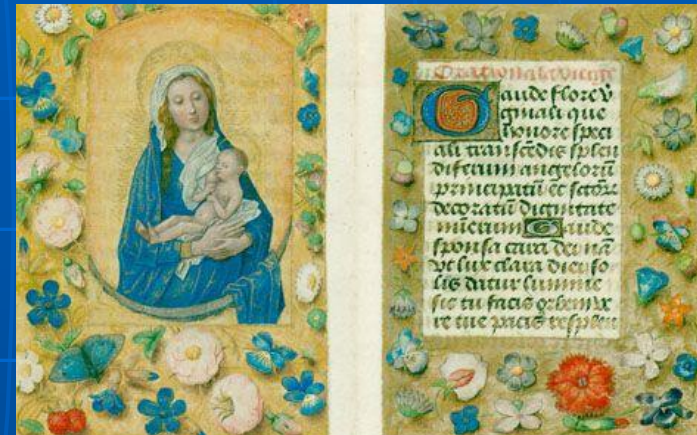 Gaude flore v
ginali que
honore speci
ali transcedis splen
diferum angelorū
principatū et sctorū
decoratū dignitate
numerum Gaude
sponsa cara dei nā
vt lux clara diei so
lis datur lumine
sic tu facis orbem
re tue pacis resplen